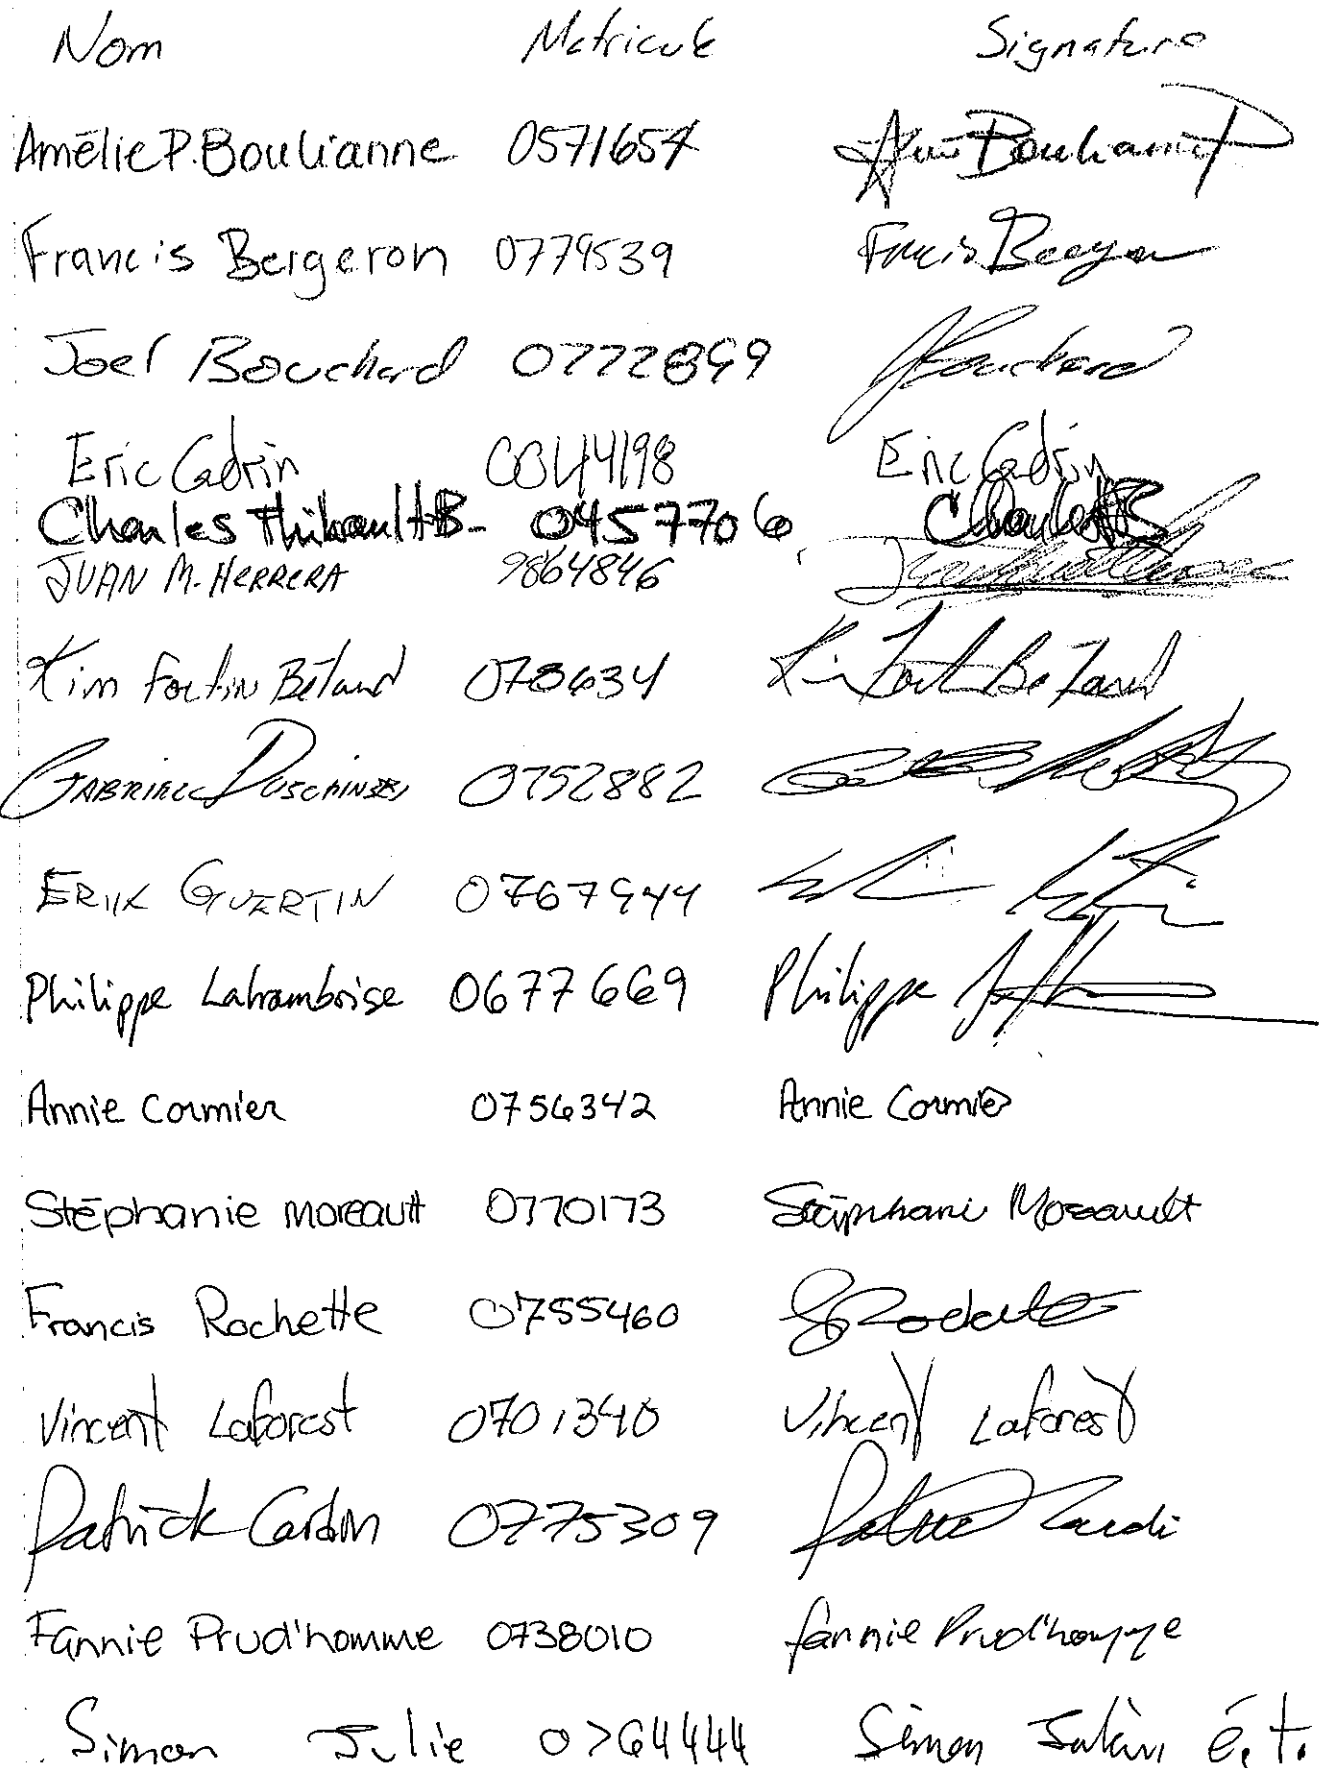 Nom Matricule Signature
Amélie P. Boulianne 0571654
Francis Bergeron 0779539 Francis Bergeron
Joel Bouchard 0772899 JBouchard
Eric Cadrin 0844198 Eric Cadrin
Charles Thibault-B- 0457706
JUAN M. HERRERA 9864846
Kim Fortin Béland 078634
GABRIEL 0752882
ERIK GUERTIN 0767944
Philippe Laframboise 0677669 Philippe
Annie Cormier 0756342 Annie Cormier
Stéphanie Moreault 0770173 Stéphanie Moreault
Francis Rochette 0755460
Vincent Laforest 0701340 Vincent Laforest
Patrick Cardin 0775309
Fannie Prud'homme 0738010 Fannie Prud'homme
Simon Julie 0764444 Simon é.t.